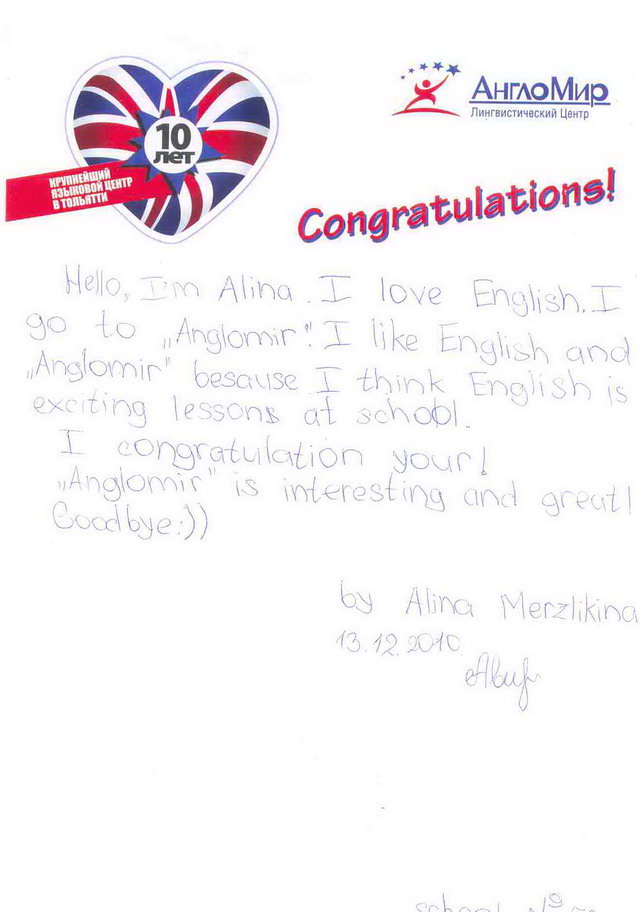 10
ЛЕТ
КРУПНЕЙШИЙ
ЯЗЫКОВОЙ ЦЕНТР
В ТОЛЬЯТТИ
АнглоМир
Лингвистический Центр
Congratulations!
Hello, I'm Alina. I love English. I
go to „Anglomir". I like English and
„Anglomir" besause I think English is
exciting lessons at school.
I congratulation your!
„Anglomir" is interesting and great!
Goodbye:))
by Alina Merzlikina
13.12.2010
school №